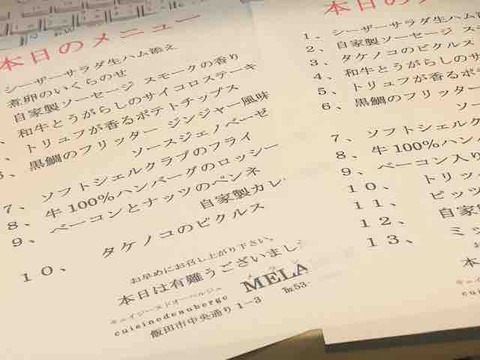 本日のメニュー
シーザーサラダ生ハム添え
煮卵のいくらのせ
自家製ソーセージ スモークの香り
和牛とうがらしのサイコロステーキ
トリュフが香るポテトチップス
黒鯛のフリッター ジンジャー風味
ソースジェノベーゼ
7、ソフトシェルクラブのフライ
8、牛100%ハンバーグのロッシー
9、ベーコンとナッツのペンネ
自家製カレ
10、タケノコのピクルス
お早めにお召し上がり下さい。
本日は有難うございまし
キュイジーヌドオーベルジュ
cuisinedeauberge MELA
飯田市中央通り1-3 ℡53-
本日のメニ
1、シーザーサラダ生ハム添
2、自家製ソーセージ スモ
3、タケノコのピクルス
4、和牛とうがらしのサイ
5、トリュフが香るポテ
6、黒鯛のフリッター
ソース
7、ソフトシェルク
8、牛100%ハン
9、ベーコン入り
10、トリッ
11、ピッツ
12、自家
13、ミッ
お
本
キュイ
cui